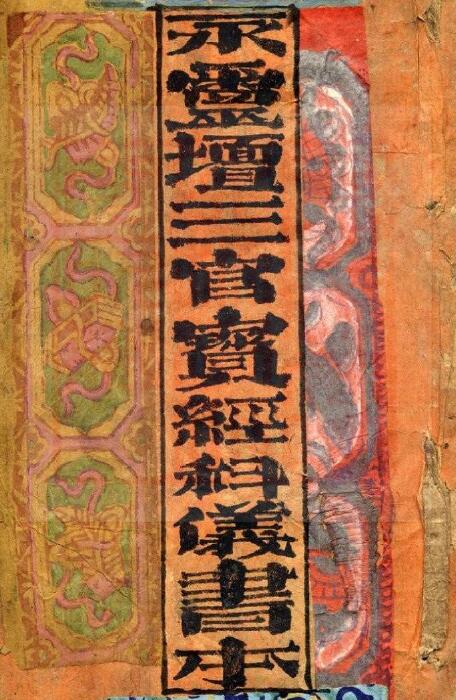 永靈壇三官寳經科儀書本